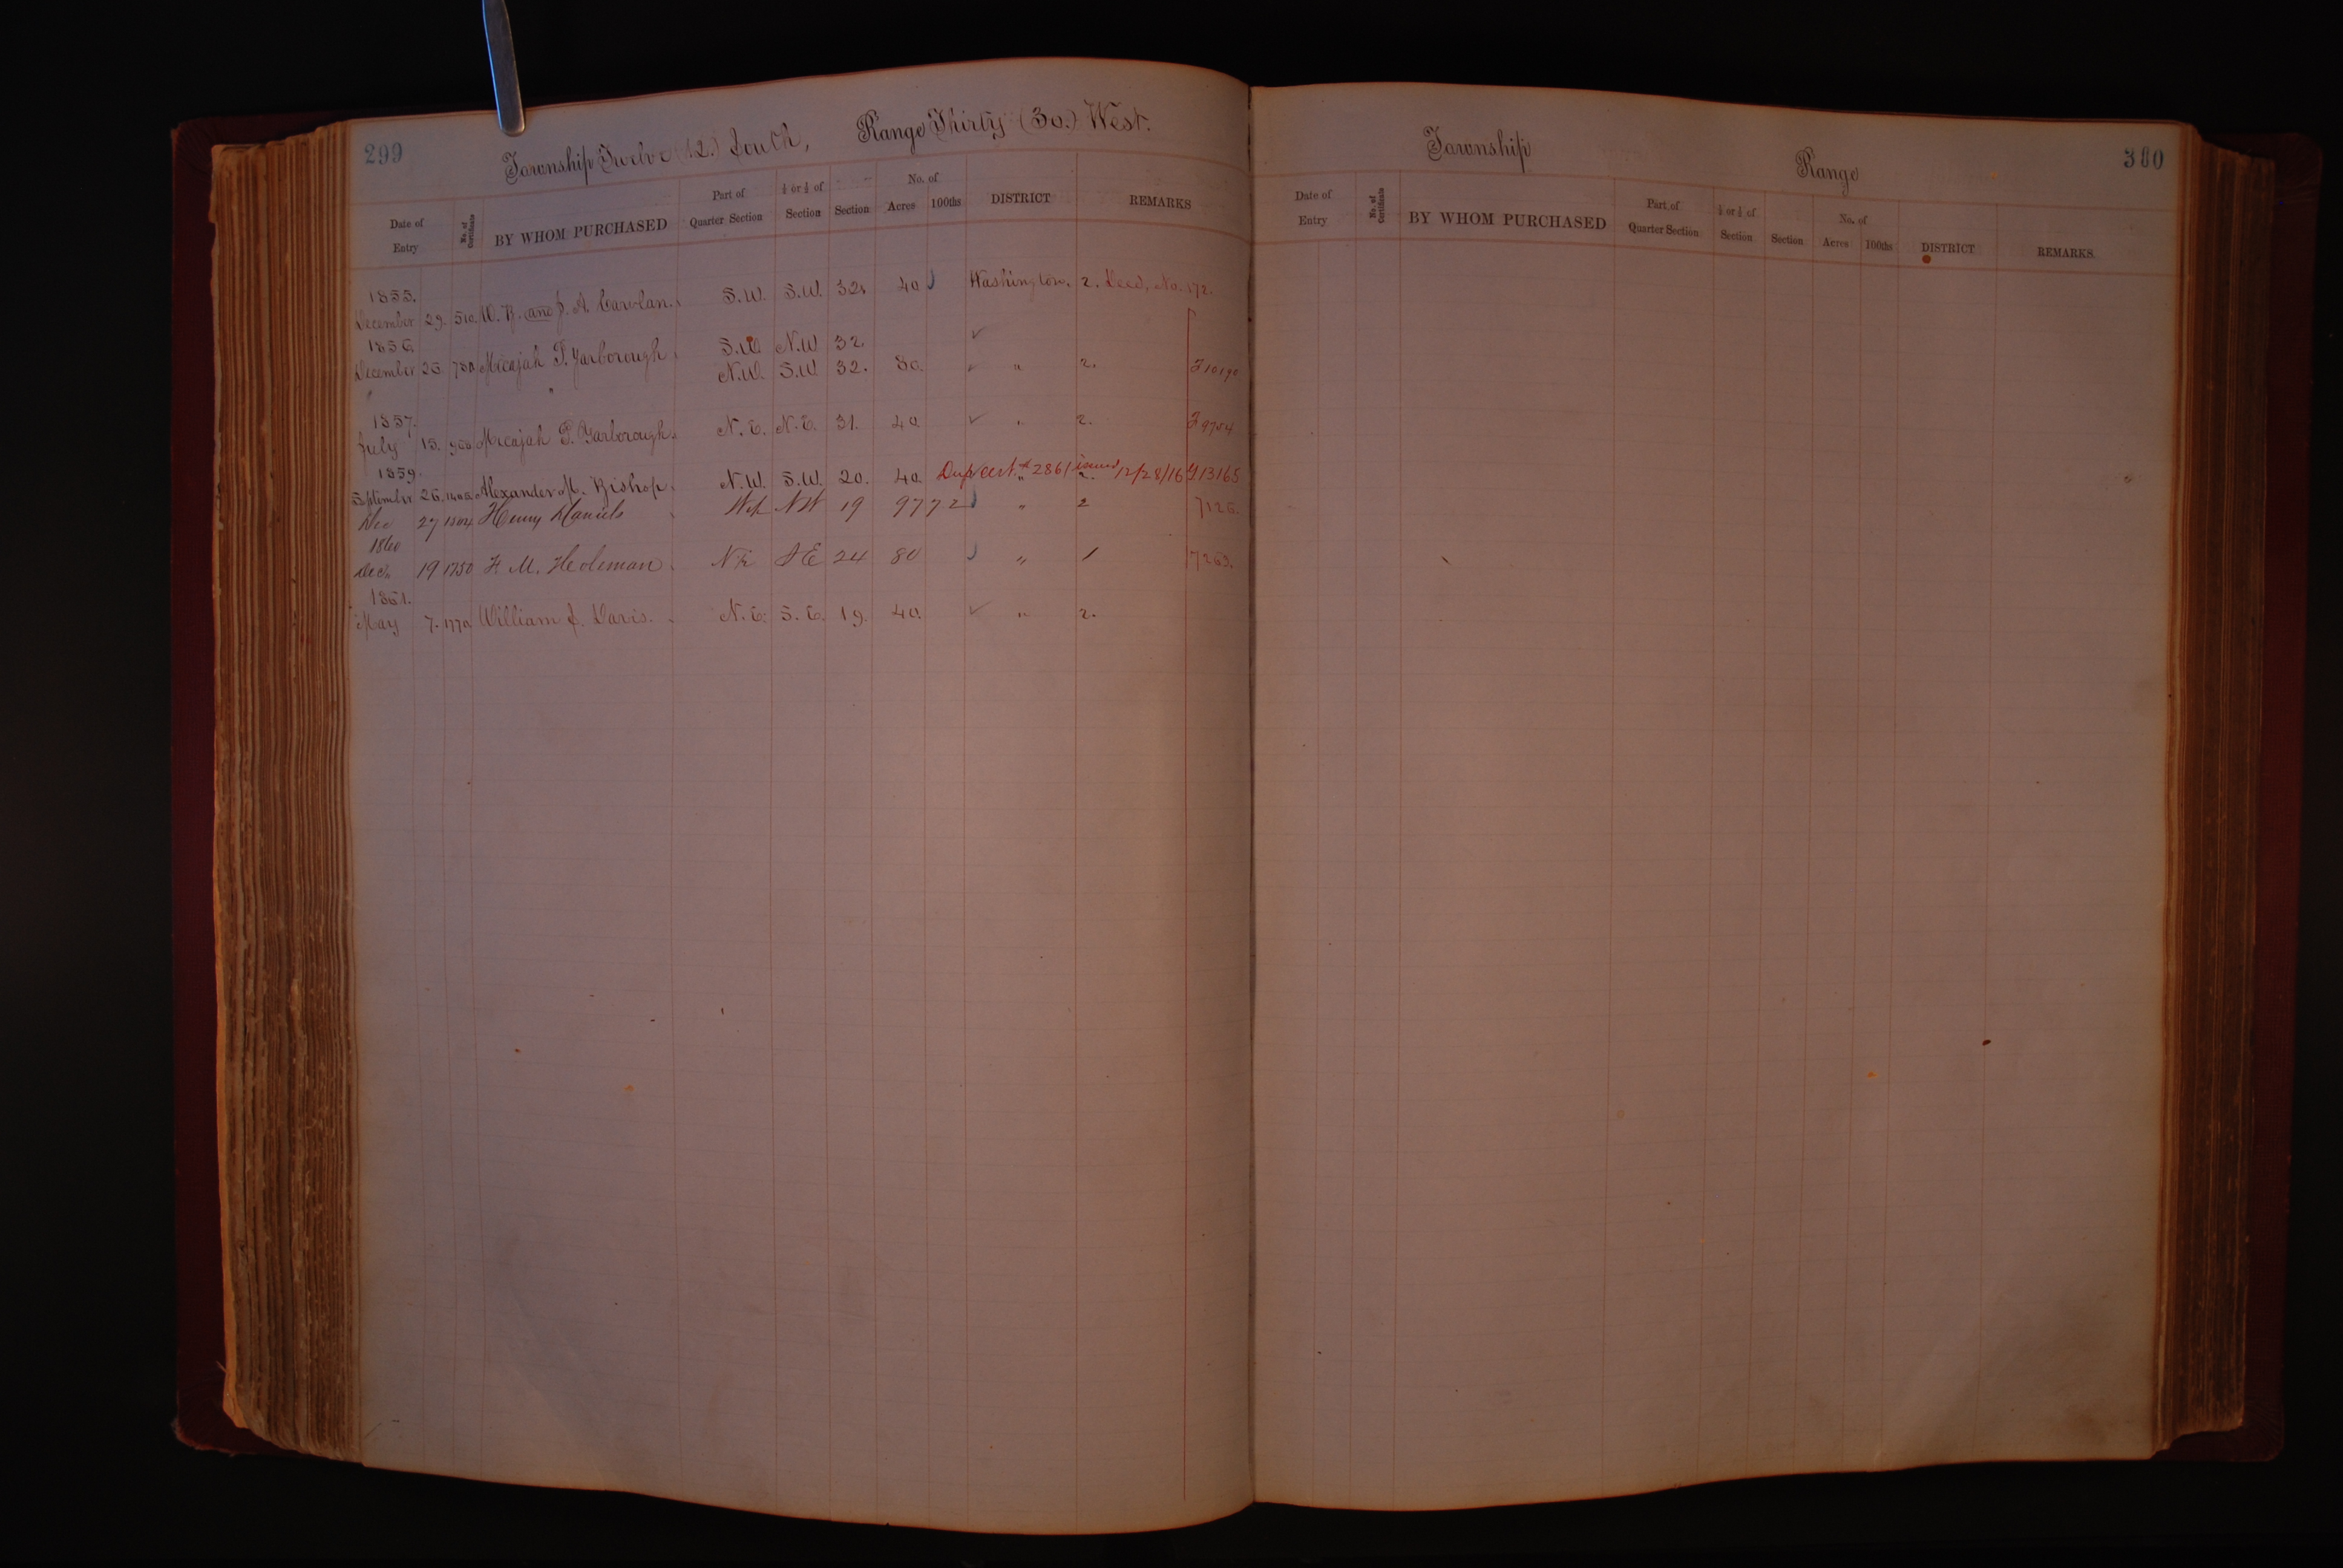 299
Township Twelve (12.) South, Range Thirty (30.) West.
Date of Entry No. of Certificate BY WHOM PURCHASED Part of Quarter Section ½ or ¼ of Section Section No. of Acres 100ths DISTRICT REMARKS
1855.
December 29. 510. W. B. and J. A. Washington. 2. Deed, No. 172. S.W. S.W. 32. 40
1856.
S.W. N.W 32.
December 25 780. Micajah P. Yarborough N.W. S.W 32. 80. " 2.
1857.
July 15. Micajah P. Yarborough. N.E. N.E. 31. 40 " 2. 9754
1859.
September 26. 1405. Alexander M. Bishop. N.W. S.W. 20. 40. Dup cert. # 2861 issued 12/28/16 " 2. 13165
Dec 27 1504 Henry Daniels NW 19 97 72 " 2 7126.
1860
Dec. 19 1750 F. M. Holeman SE 24 80 " 1 7263.
1861.
May 7. 1770. William J. Davis. N.E. S.E. 19. 40. " 2.
300
Township Range
Date of Entry No. of Certificate BY WHOM PURCHASED Part of Quarter Section ½ or ¼ of Section Section No. of Acres 100ths DISTRICT REMARKS.